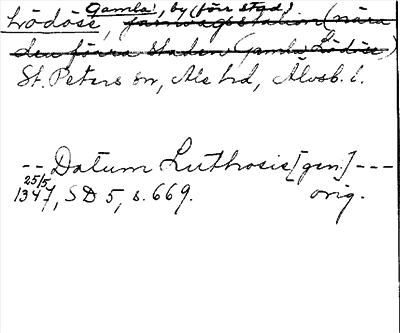 Gamla, by (förr stad)
Lödöse, järnvägsstation (nära
den förra staden gamla Lödöse)
St. Peters sn, Ale hd, Älvsb. l.
-- Datum Luthosie [gen] ---
25/5
1347, SD 5, s. 669. orig.